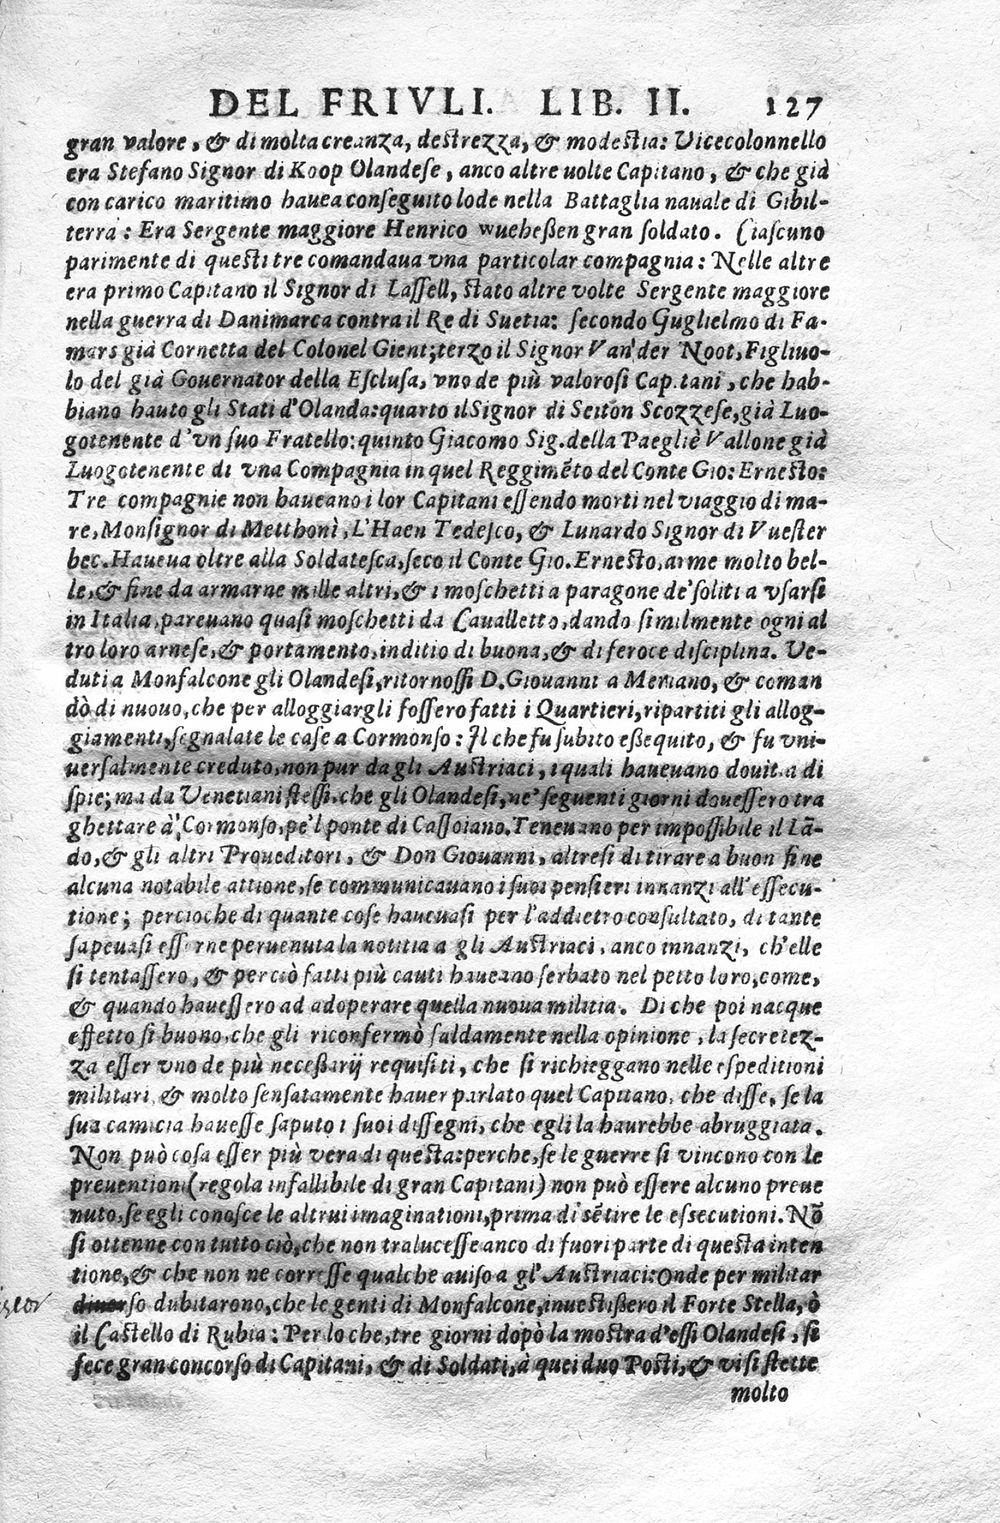 DEL FRIVLI. LIB. II. 127
gran valore, & di molta creanza, destrezza, & modestia: Vicecolonnello
era Stefano Signor di Koop Olandese, anco altre uolte Capitano, & che già
con carico maritimo hauea conseguito lode nella Battaglia nauale di Gibil-
terra: Era Sergente maggiore Henrico wuehessen gran soldato. Ciascuno
parimente di questi tre comandaua vna particolar compagnia: Nelle altre
era primo Capitano il Signor di Lassell, stato altre volte Sergente maggiore
nella guerra di Danimarca contra il Re di Suetia: secondo Guglielmo di Fa-
mars già Cornetta del Colonel Gient; terzo il Signor Van'der Noot, Figliuo-
lo del già Gouernator della Esclusa, vno de più valorosi Capitani, che hab-
biano hauto gli Stati d'Olanda: quarto il Signor di Seiton Scozzese, già Luo-
gotenente d'vn suo Fratello: quinto Giacomo Sig. della Paegliè Vallone già
Luogotenente di vna Compagnia in quel Reggimẽto del Conte Gio: Ernesto:
Tre compagnie non haueano i lor Capitani essendo morti nel viaggio di ma-
re, Monsignor di Metthonì, L'Haen Tedesco, & Lunardo Signor di Vuester
bec. Haueua oltre alla Soldatesca, seco il Conte Gio. Ernesto, arme molto bel-
le, & fine da armarne mille altri, & i moschetti a paragone de' soliti a vsarsi
in Italia, pareuano quasi moschetti da Caualletto, dando similmente ogni al
tro loro arnese, & portamento, inditio di buona, & di feroce disciplina. Ve-
duti a Monfalcone gli Olandesi, ritornossi D. Giouanni a Meriano, & coman
dò di nuouo, che per alloggiargli fossero fatti i Quartieri, ripartiti gli allog-
giamenti, segnalate le case a Cormonso: Il che fu subito essequito, & fu vni-
uersalmente creduto, non pur da gli Austriaci, i quali haueuano douitia di
spie; ma da Venetiani stessi, che gli Olandesi, ne' seguenti giorni douessero tra
ghettare à' Cormonso, pe'l ponte di Cassoiano. Teneuano per impossibile il Lã-
do, & gli altri Proueditori, & Don Giouanni, altresi di tirare a buon fine
alcuna notabile attione, se communicauano i suoi pensieri innanzi all'essecu-
tione; percioche di quante cose haueuasi per l'addietro consultato, di tante
sapeuasi esserne peruenuta la notitia a gli Austriaci, anco innanzi, ch'elle
si tentassero, & perciò fatti più cauti haueano serbato nel petto loro, come,
& quando hauessero ad adoperare quella nuoua militia. Di che poi nacque
effetto si buono, che gli riconfermò saldamente nella opinione, la secretez-
za esser vno de più necessarij requisiti, che si richieggano nelle espeditioni
militari, & molto sensatamente hauer parlato quel Capitano, che disse, se la
sua camicia hauesse saputo i suoi dissegni, che egli la haurebbe abruggiata.
Non può cosa esser più vera di questa: perche, se le guerre si vincono con le
preuentioni (regola infallibile di gran Capitani) non può essere alcuno preue
nuto, se egli conosce le altrui imaginationi, prima di sẽtire le essecutioni. Nõ
si ottenne con tutto ciò, che non tralucesse anco di fuori parte di questa inten
tione, & che non ne corresse qualche auiso a gl'Austriaci: Onde per militar
diuerso dubitarono, che le genti di Monfalcone, inuestissero il Forte Stella, ò
il Castello di Rubia: Per lo che, tre giorni dopò la mostra d'essi Olandesi, si
fece gran concorso di Capitani, & di Soldati, à quei duo Posti, & vi si stette
molto